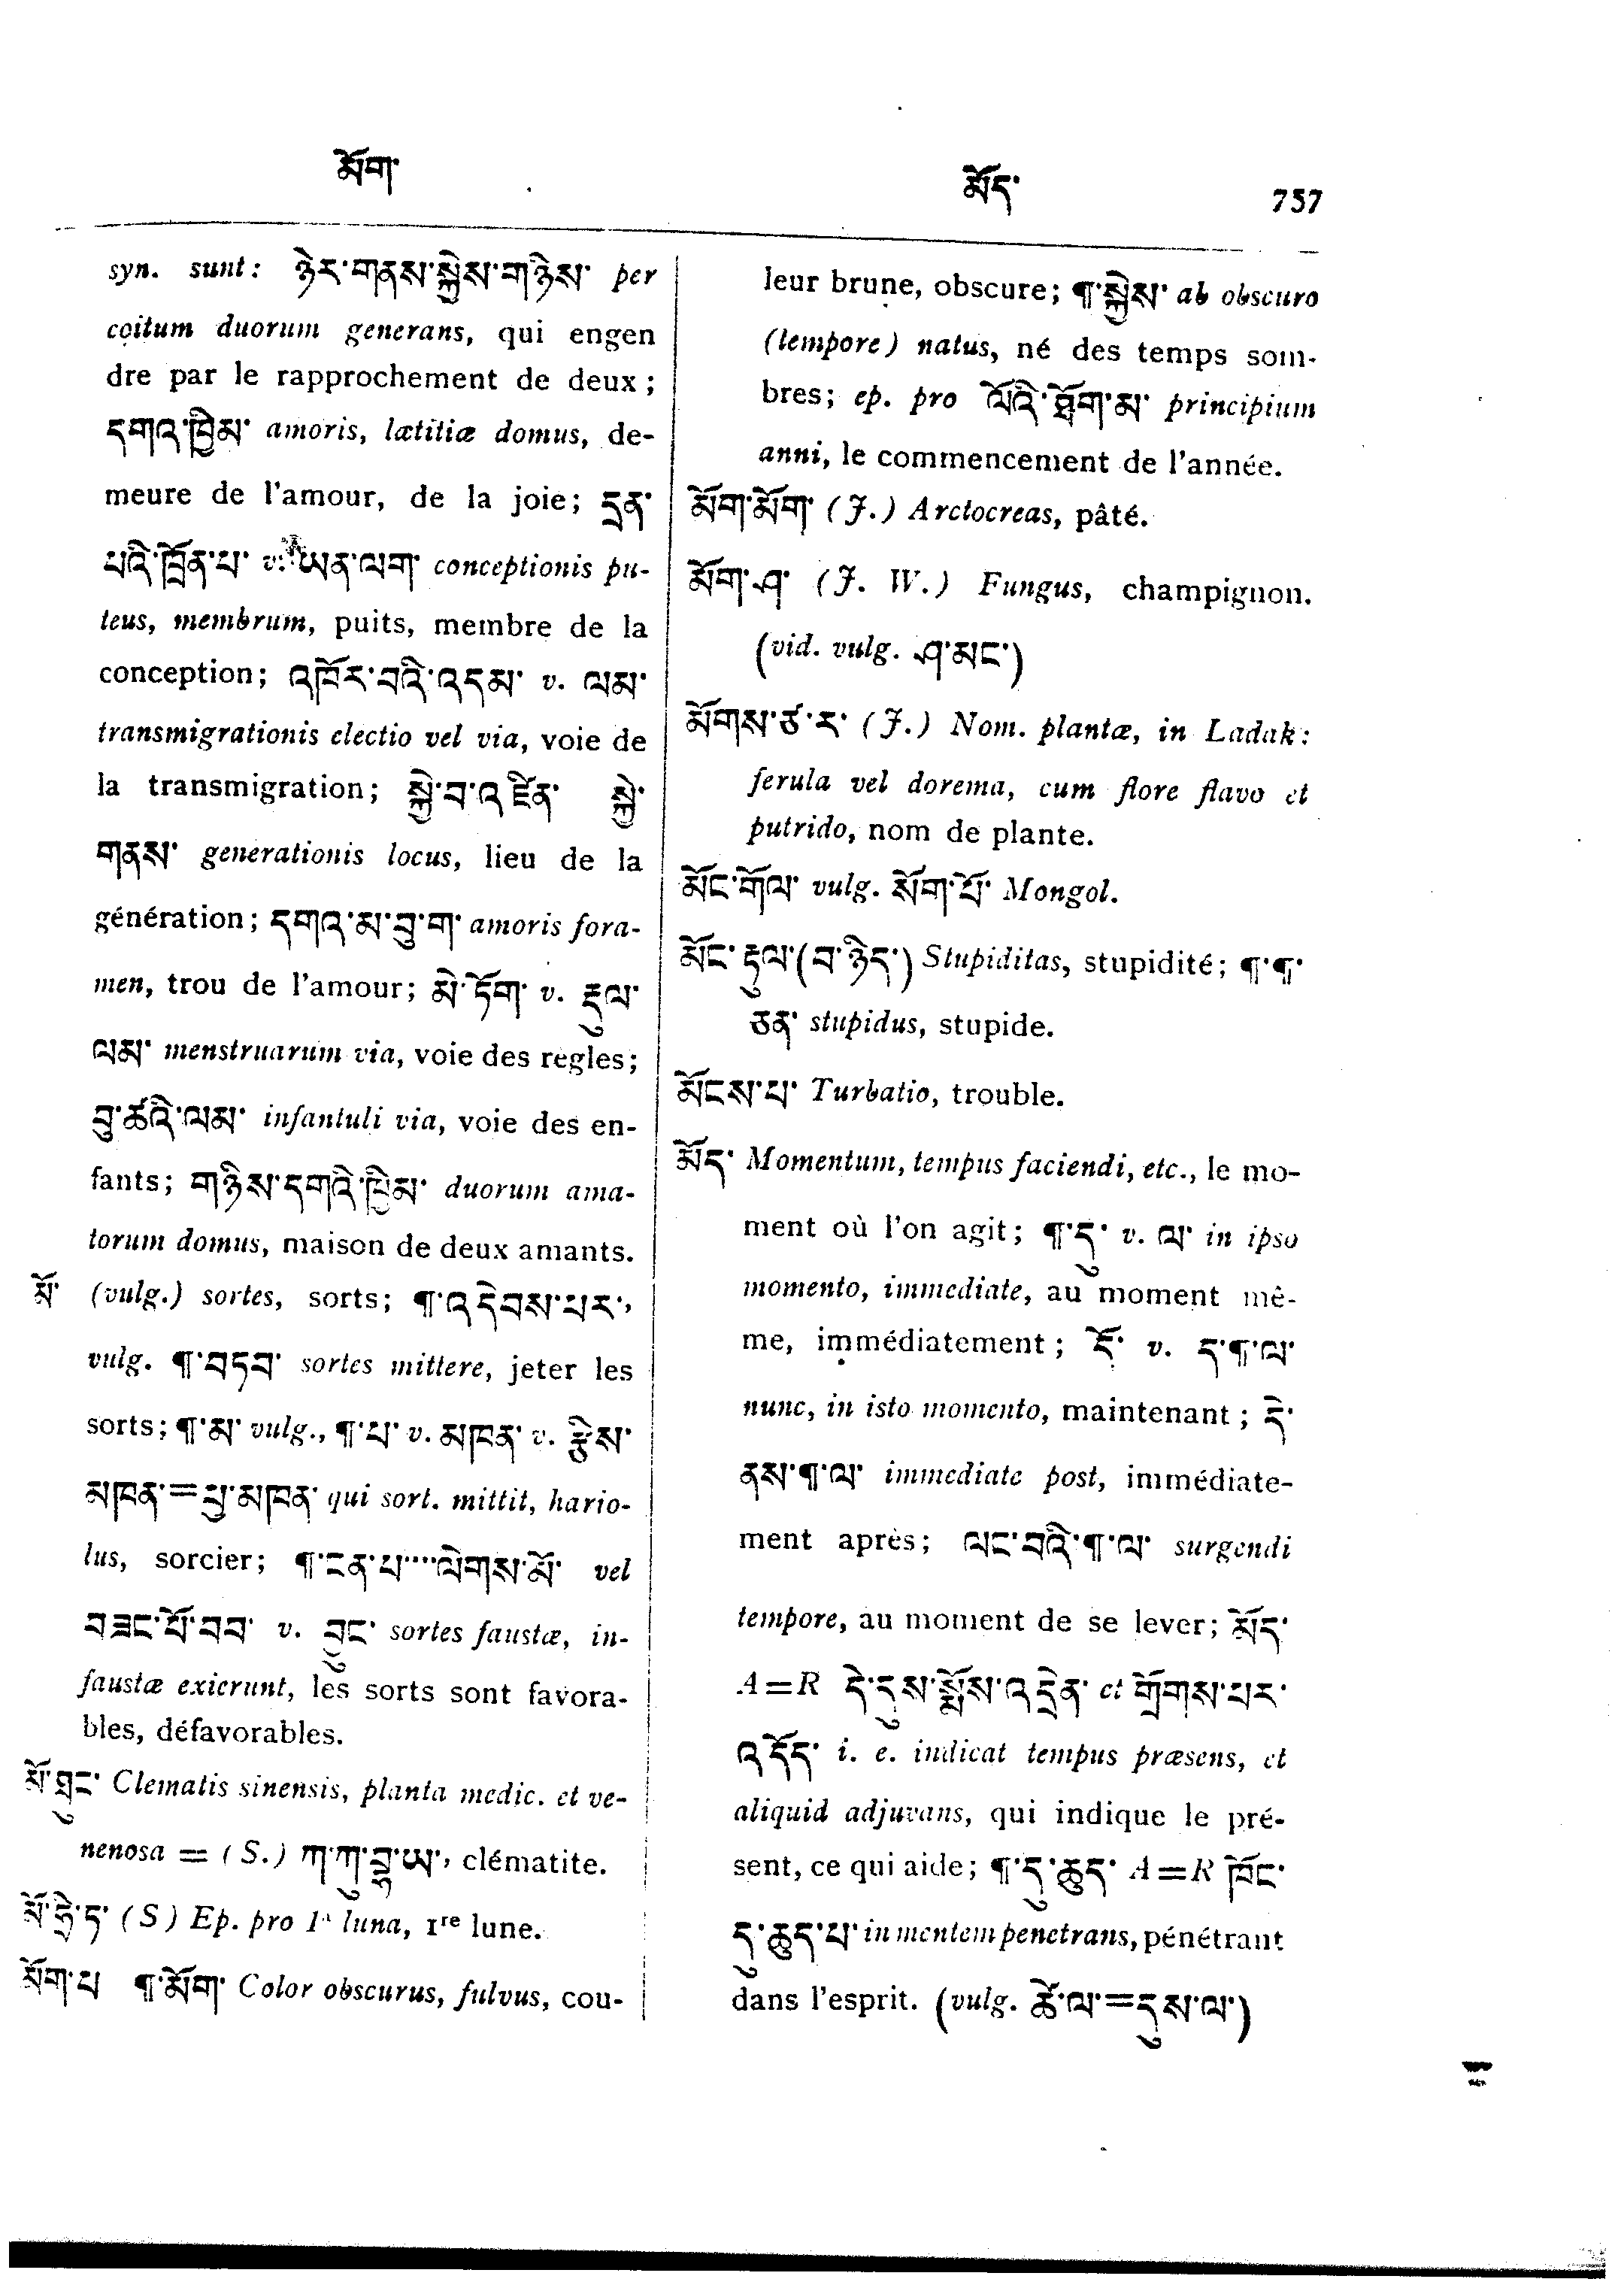 མོག་
མོད་ 757
syn. sunt: ཉེར་གནས་སྐྱེས་གཉིས་ per
coitum duorum generans, qui engen
dre par le rapprochement de deux;
དགའ་ཁྱིམ་ amoris, lætitiæ domus, de-
meure de l'amour, de la joie; དྲན་
པའི་ཁྲོན་པ་ v. ཡན་ལག་ conceptionis pu-
teus, membrum, puits, membre de la
conception; འཁོར་བའི་འདམ་ v. ལམ་
transmigrationis electio vel via, voie de
la transmigration; སྐྱེ་བ་འཛིན་ སྐྱེ་
གནས་ generationis locus, lieu de la
génération; དགའ་མ་བུ་ག་ amoris fora-
men, trou de l'amour; མེ་ཏོག་ v. རྡུལ་
ལམ་ menstruarum via, voie des regles;
བུ་ཚའི་ལམ་ infantuli via, voie des en-
fants; གཉིས་དགའི་ཁྱིམ་ duorum ama-
torum domus, maison de deux amants.
མོ་ (vulg.) sortes, sorts; ¶་འདེབས་པར་,
vulg. ¶་བཏབ་ sortes mittere, jeter les
sorts; ¶་མ་ vulg., ¶་པ་ v. མཁན་ v. རྩིས་
མཁན་=ཕྱ་མཁན་ qui sort. mittit, hario-
lus, sorcier; ¶་ངན་པ་་་་ལེགས་མོ་ vel
བཟང་པོ་བབ་ v. བྱུང་ sortes faustæ, in-
faustæ exierunt, les sorts sont favora-
bles, défavorables.
མོ་ཐུང་ Clematis sinensis, planta medic. et ve-
nenosa = (S.) ཀ་ཀུ་བྷ་ཡ་, clématite.
མོ་ཧེ་ད་ (S) Ep. pro 1ª luna, 1re lune.
མོག་པ ¶་མོག་ Color obscurus, fulvus, cou-
leur brune, obscure; ¶་སྐྱེས་ ab obscuro
(tempore) natus, né des temps som-
bres; ep. pro ལོའི་ཐོག་མ་ principium
anni, le commencement de l'année.
མོག་མོག་ (J.) Arctocreas, pâté.
མོག་ཤ་ (J. W.) Fungus, champignon.
(vid. vulg. ཤ་མང་)
མོགས་ཙ་ར་ (J.) Nom. plantæ, in Ladak:
ferula vel dorema, cum flore flavo et
putrido, nom de plante.
མོང་གོལ་ vulg. སོག་པོ་ Mongol.
མོང་རྡུལ་(བ་ཉིད་) Stupiditas, stupidité; ¶་¶་
ཅན་ stupidus, stupide.
མོངས་པ་ Turbatio, trouble.
མོད་ Momentum, tempus faciendi, etc., le mo-
ment où l'on agit; ¶་དུ་ v. ལ་ in ipso
momento, immediate, au moment mê-
me, immédiatement; དོ་ v. ད་¶་ལ་
nunc, in isto momento, maintenant; དེ་
ནས་¶་ལ་ immediate post, immédiate-
ment après; ལང་བའི་¶་ལ་ surgendi
tempore, au moment de se lever; མོད་
A=R དེ་དུས་སྨོས་འདྲེན་ et གྲོགས་པར་
འདོད་ i. e. indicat tempus præsens, et
aliquid adjuvans, qui indique le pré-
sent, ce qui aide; ¶་དུ་ཆུད་ A=R ཁོང་
དུ་ཆུད་པ་ in mentem penetrans, pénétrant
dans l'esprit. (vulg. ཚེ་ལ་=དུས་ལ་)